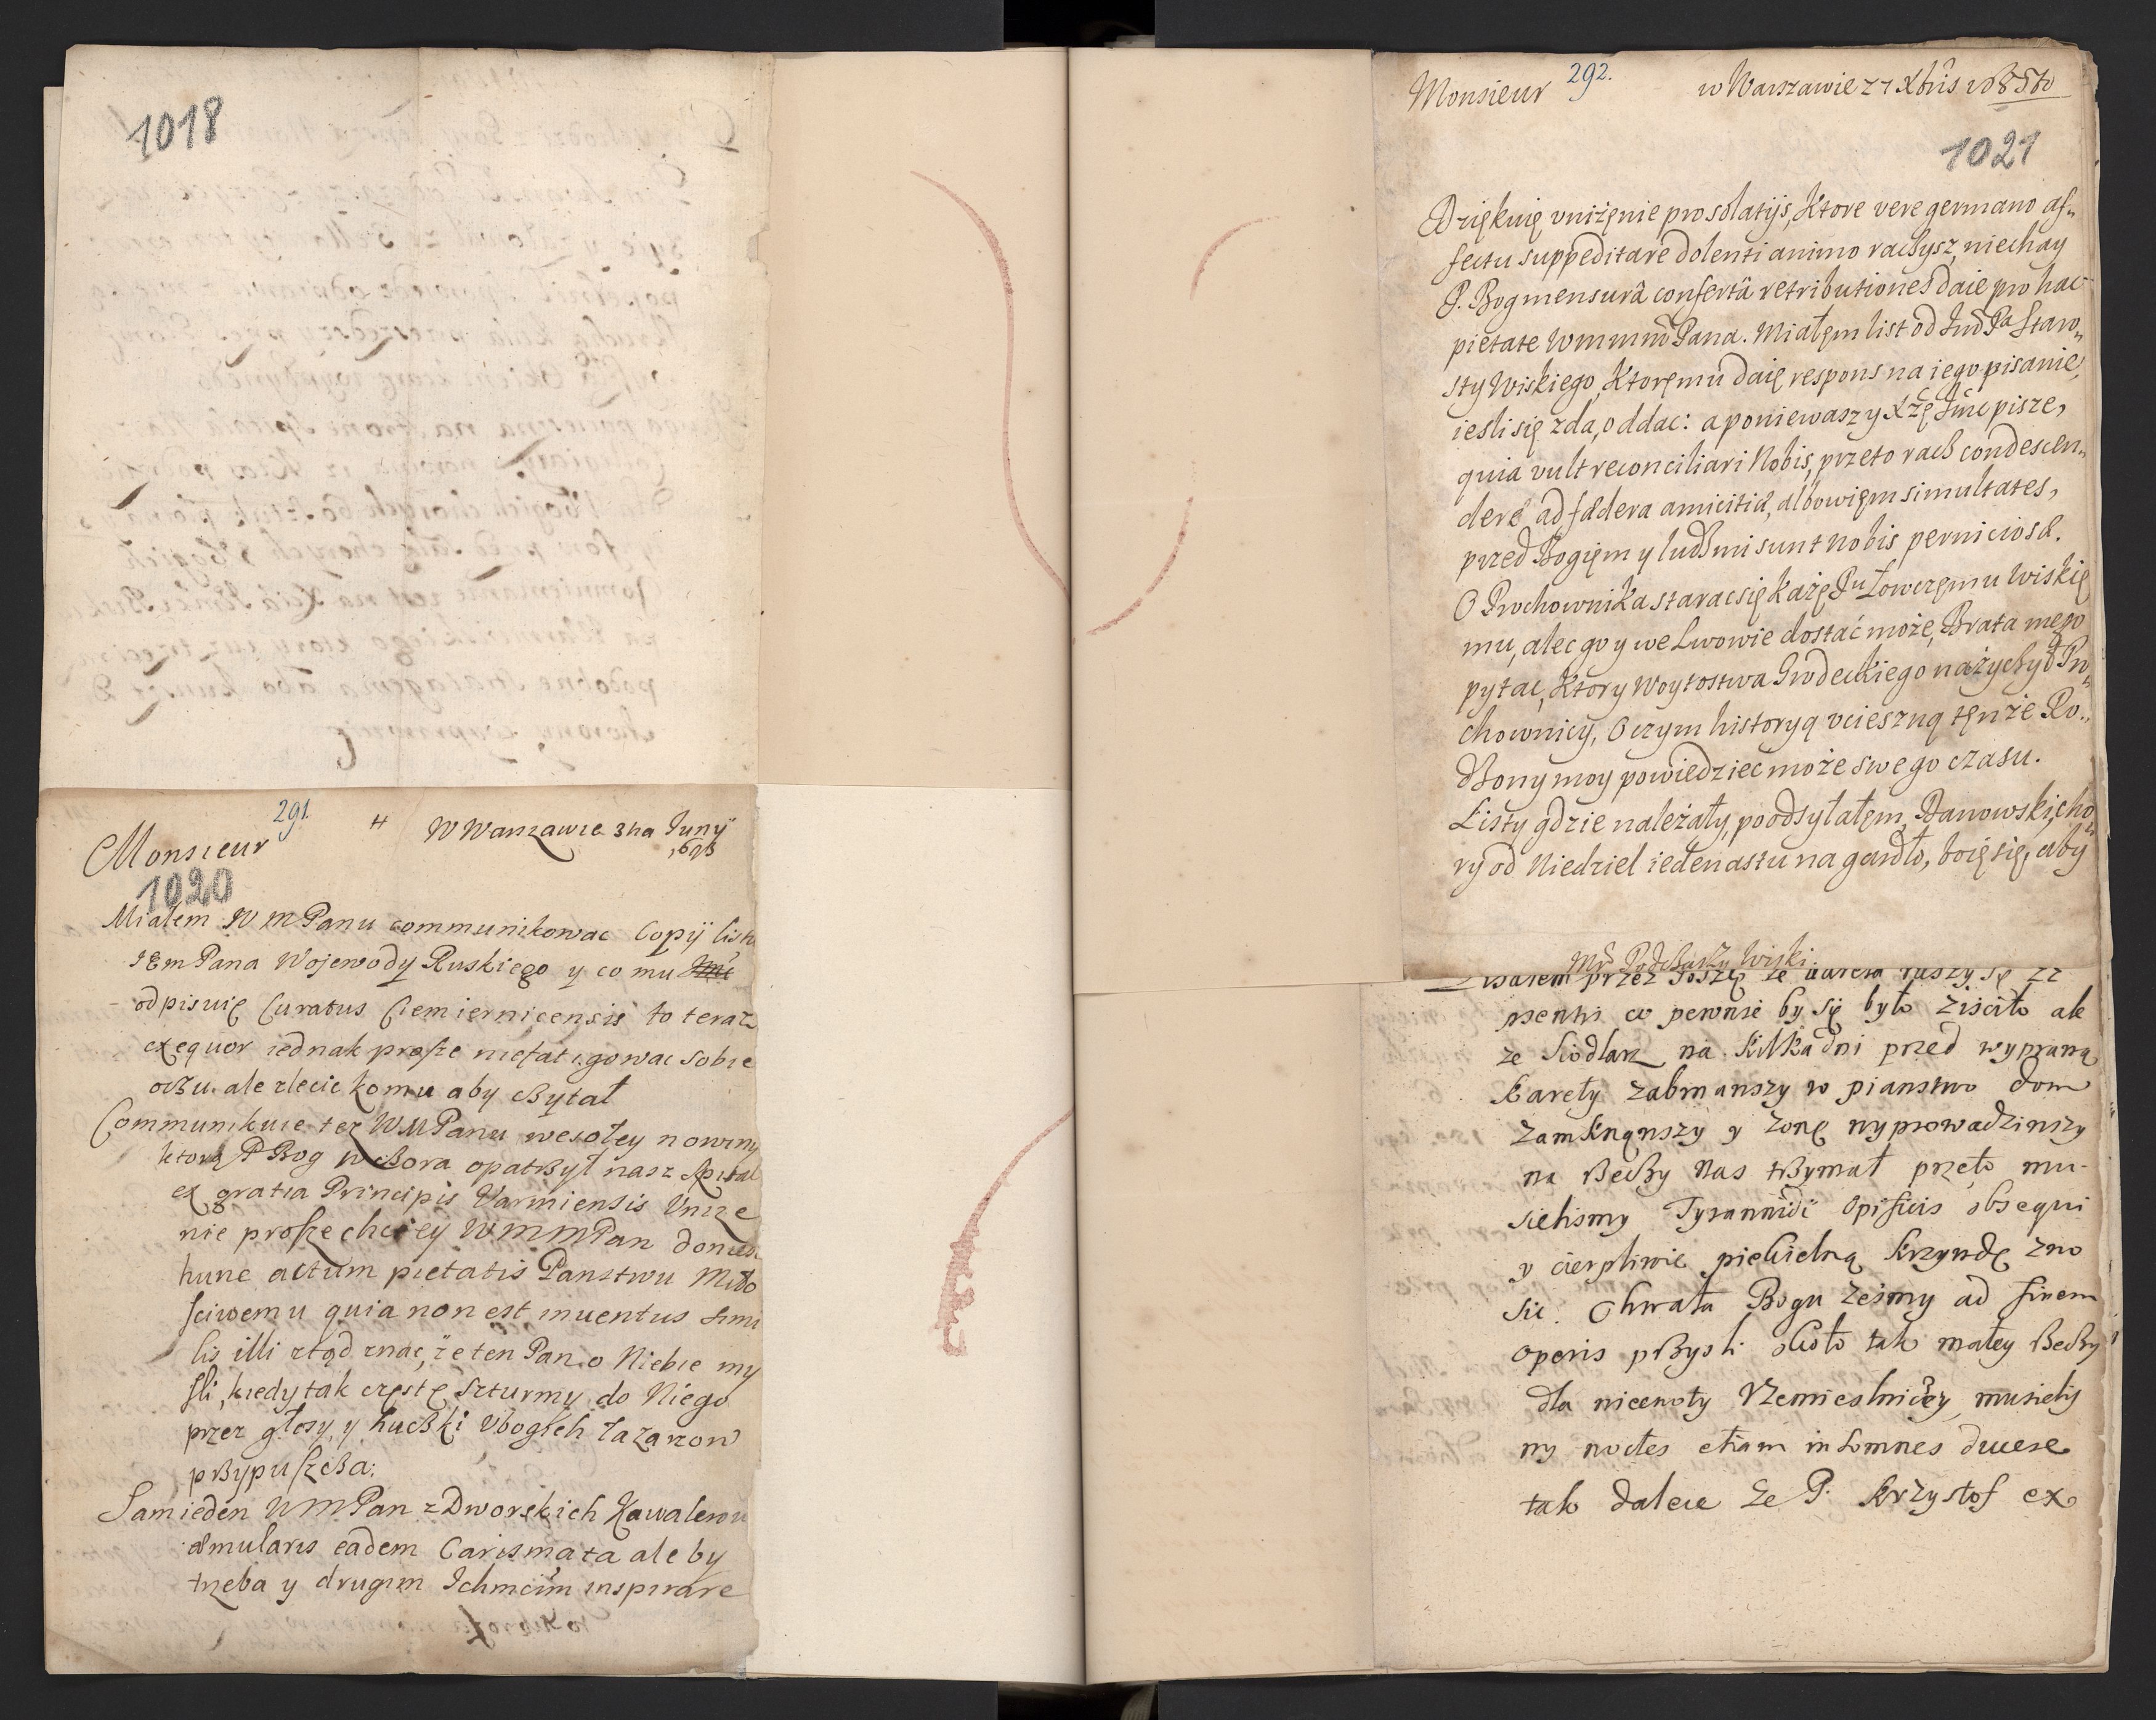 1018
291.
Monsieur # W Warszawie 3 na Juny
1698
1020
Mialem W M Panu communikowac Copij listu
JEm Pana Wojewody Ruskiego y co mu
odpisuię Curatus Ciemiernicensis to teraz
exequor iednak proszę niefatigowac sobie
oczu. ale zlecic komu aby czytał
Communikuie tez WM Panu wesołey nowiny
ktorą P Bog wczora opatrzył nasz szpital
ex gratia Principis Varmiensis Unize
nie proszę chciey WMMPan donieś
hunc actum pietatis Panstwu Miło
sciwemu quia non est inventus simi
lis illi ztąd znac, że ten Pan o Niebie my
śli, kiedy tak częste szturmy do Niego
przez głosy, y huczki Vbogich Łazarzow
przypuszcza:
Sam ieden WMPan z Dworskich Kawalerow
æmularis eadem Carismata ale by
trzeba y drugim Ichmcim inspirare
292.
Monsieur w Warszawie 27 Xbris
1021
Dziękuię vniżęnie pro solatijs, Ktore vere germano af„
fectu suppeditare dolenti animo raczysz, niechay
P. Bog mensurâ confertâ retributiones daie pro hac
pietate Wmmm Pana. Miałęm list od Jmo Pa Staro„
sty Wiskiego, Ktoręmu daię respons na iego pisanie,
iesli się zda, oddac: a poniewasz y Xżę Jmć pisze,
quia vult reconciliari Nobis, przeto racz condescen„
dere ad fædera amicitiæ, albowięm simultates,
przed Bogięm y ludźmi sunt nobis perniciosæ.
O Prochownika starac się każę Pu Łowczęmu Wiskię
mu, alec go y we Lwowie dostać może, Brata męgo
pytac, Ktory Woytostwa Grodeckiego nażyczył Pro„
chownicy, O czym historyą vcieszną tęnże Ro„
dzony moy powiedziec może swego czasu.
Listy gdzie należały, poodsyłałęm, Banowski, cho„
ry od Niedziel iedenastu na gardło, boię się, aby
Mr Podczaszy Wiski
przez że kareta ruszy się
co pewnie by się było ziściło ale
ze Siodlarz na kilka dni przed wyprawą
Karety zabrnąwszy w pianstwo dom
zamknąwszy y zonę wyprowadziwszy
na Beczy nas trzymał przeto mu-
sielismy Tyrannidi Opificis obsequi
y cierpliwie piekielną krzywdę zno
sic. Chwała Bogu żeśmy ad finem
operis przyszli około tak małey Beczy
dla niecnoty Rzemieslniczey, musieliś
my noctes etiam insomnes ducere
tak dalece że P. Krzysztof ex